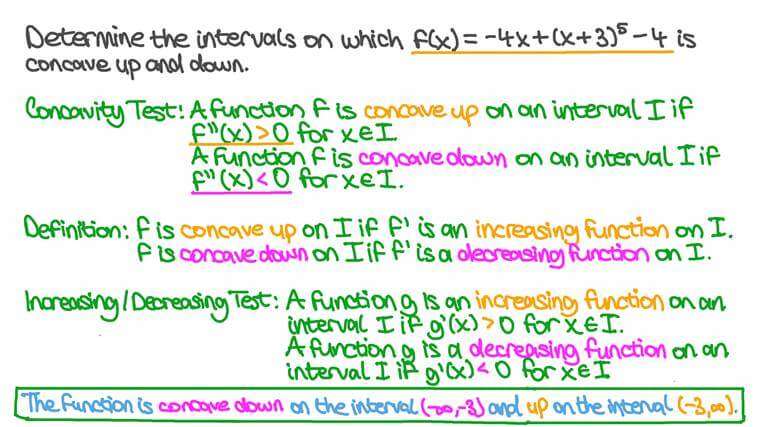 Determine the intervals on which f(x) = -4x + (x+3)⁵ - 4 is
concave up and down.
Concavity Test: A function f is concave up on an interval I if
f''(x) > 0 for x ∈ I.
A function f is concave down on an interval I if
f''(x) < 0 for x ∈ I.
Definition: f is concave up on I if f' is an increasing function on I.
f is concave down on I if f' is a decreasing function on I.
Increasing/Decreasing Test: A function g is an increasing function on an
interval I if g'(x) > 0 for x ∈ I.
A function g is a decreasing function on an
interval I if g'(x) < 0 for x ∈ I
The function is concave down on the interval (-∞,-3) and up on the interval (-3,∞).